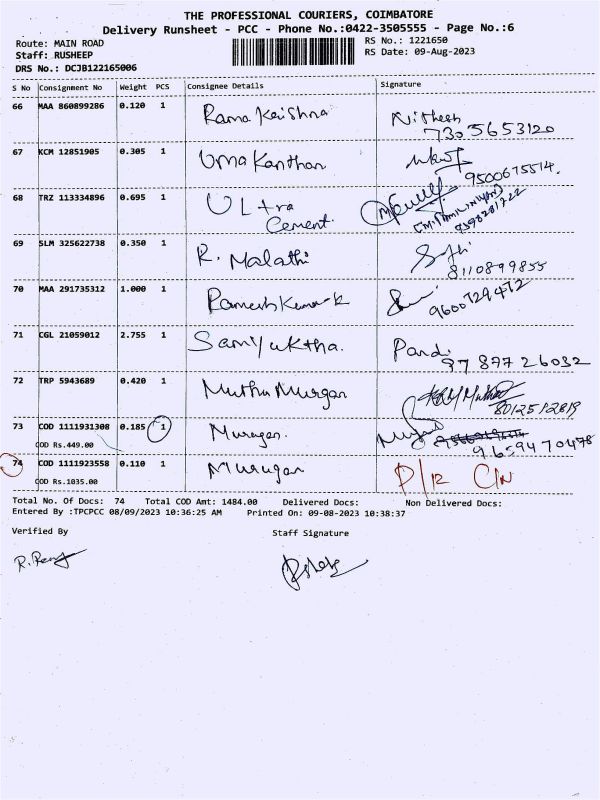 THE PROFESSIONAL COURIERS, COIMBATORE
Delivery Runsheet - PCC - Phone No.:0422-3505555 - Page No.:6
Route: MAIN ROAD RS No.: 1221650
Staff: RUSHEEP RS Date: 09-Aug-2023
DRS No.: DCJB122165006
S No Consignment No Weight PCS Consignee Details Signature
66 MAA 860899286 0.120 1 Rama Krishna Nithesh
7305653120
67 KCM 12851905 0.305 1 Uma Kanthan
9500675514.
68 TRZ 113334896 0.695 1 ULtra
Cement.
69 SLM 325622738 0.350 1 R. Malathi
8110899855
70 MAA 291735312 1.000 1 Ramesh Kumar K
9600729472
71 CGL 21059012 2.755 1 Samyuktha. Pandi
97 877 26032
72 TRP 5943689 0.420 1 Muthu Murgan
8012512819
73 COD 1111931308 0.185 1 Murugan.
9659470478
COD Rs.449.00
74 COD 1111923558 0.110 1 Murugan
COD Rs.1035.00
Total No. Of Docs: 74 Total COD Amt: 1484.00 Delivered Docs: Non Delivered Docs:
Entered By :TPCPCC 08/09/2023 10:36:25 AM Printed On: 09-08-2023 10:38:37
Verified By Staff Signature